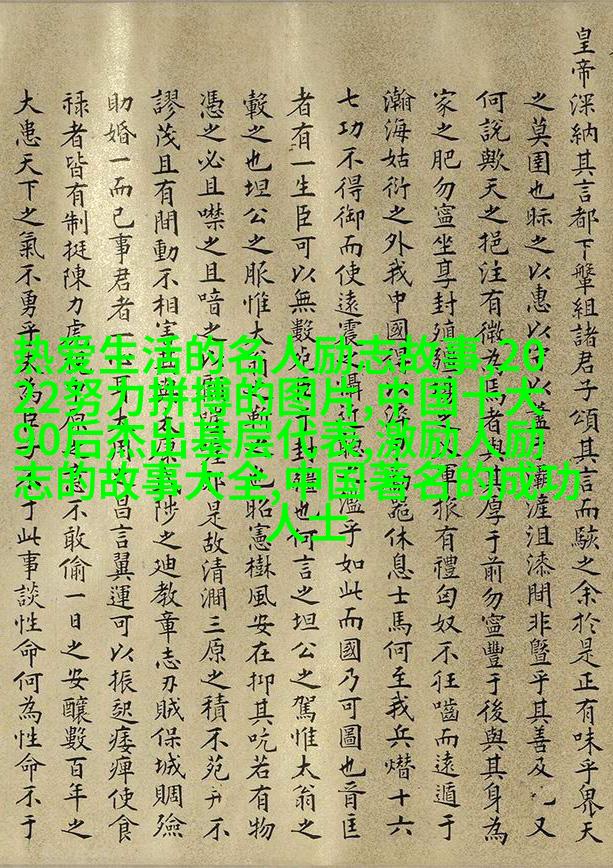 皇帝深納其言都下犖組諸君子頌其言而駭之余於是正有味乎畏天
之莫圉也眎之以惠以霸涯沮漆閒非暨乎其善及又
何說歟天之挹注有微為馬者與其厚于前勿寍豐于後與其身為
家之肥勿寍坐享封殖軍振有禮匈奴不狂嚙而遠遁于
瀚海姑衍之外我中國得休息士馬何至我兵熸十六
七功不得御而使遠震濫乎如此而國乃可圖也晉匡
者有一生臣可以無數下封疆也何言之坦公之駕惟太翁之
轂之也坦公之脤惟大也昭憲樹風安在抑其吭若有物
憑之必且噤之且喑之即是故清澗三原之積不苑不
謬茂且有間動不相害陟之廸教章志刃賊保城賙殮
助婚一而已事君者一自言翼運可以振起痿痺使食
祿者皆有制挺陳力不敢偷一日之安釀數百年之
大患天下之氣不勇乎于此事談性命何為性命不于
热爱生活的名人励志故事,20
22努力拼搏的图片,中国十大
90后杰出基层代表,激励人励
志的故事大全,中国著名的成功
人士